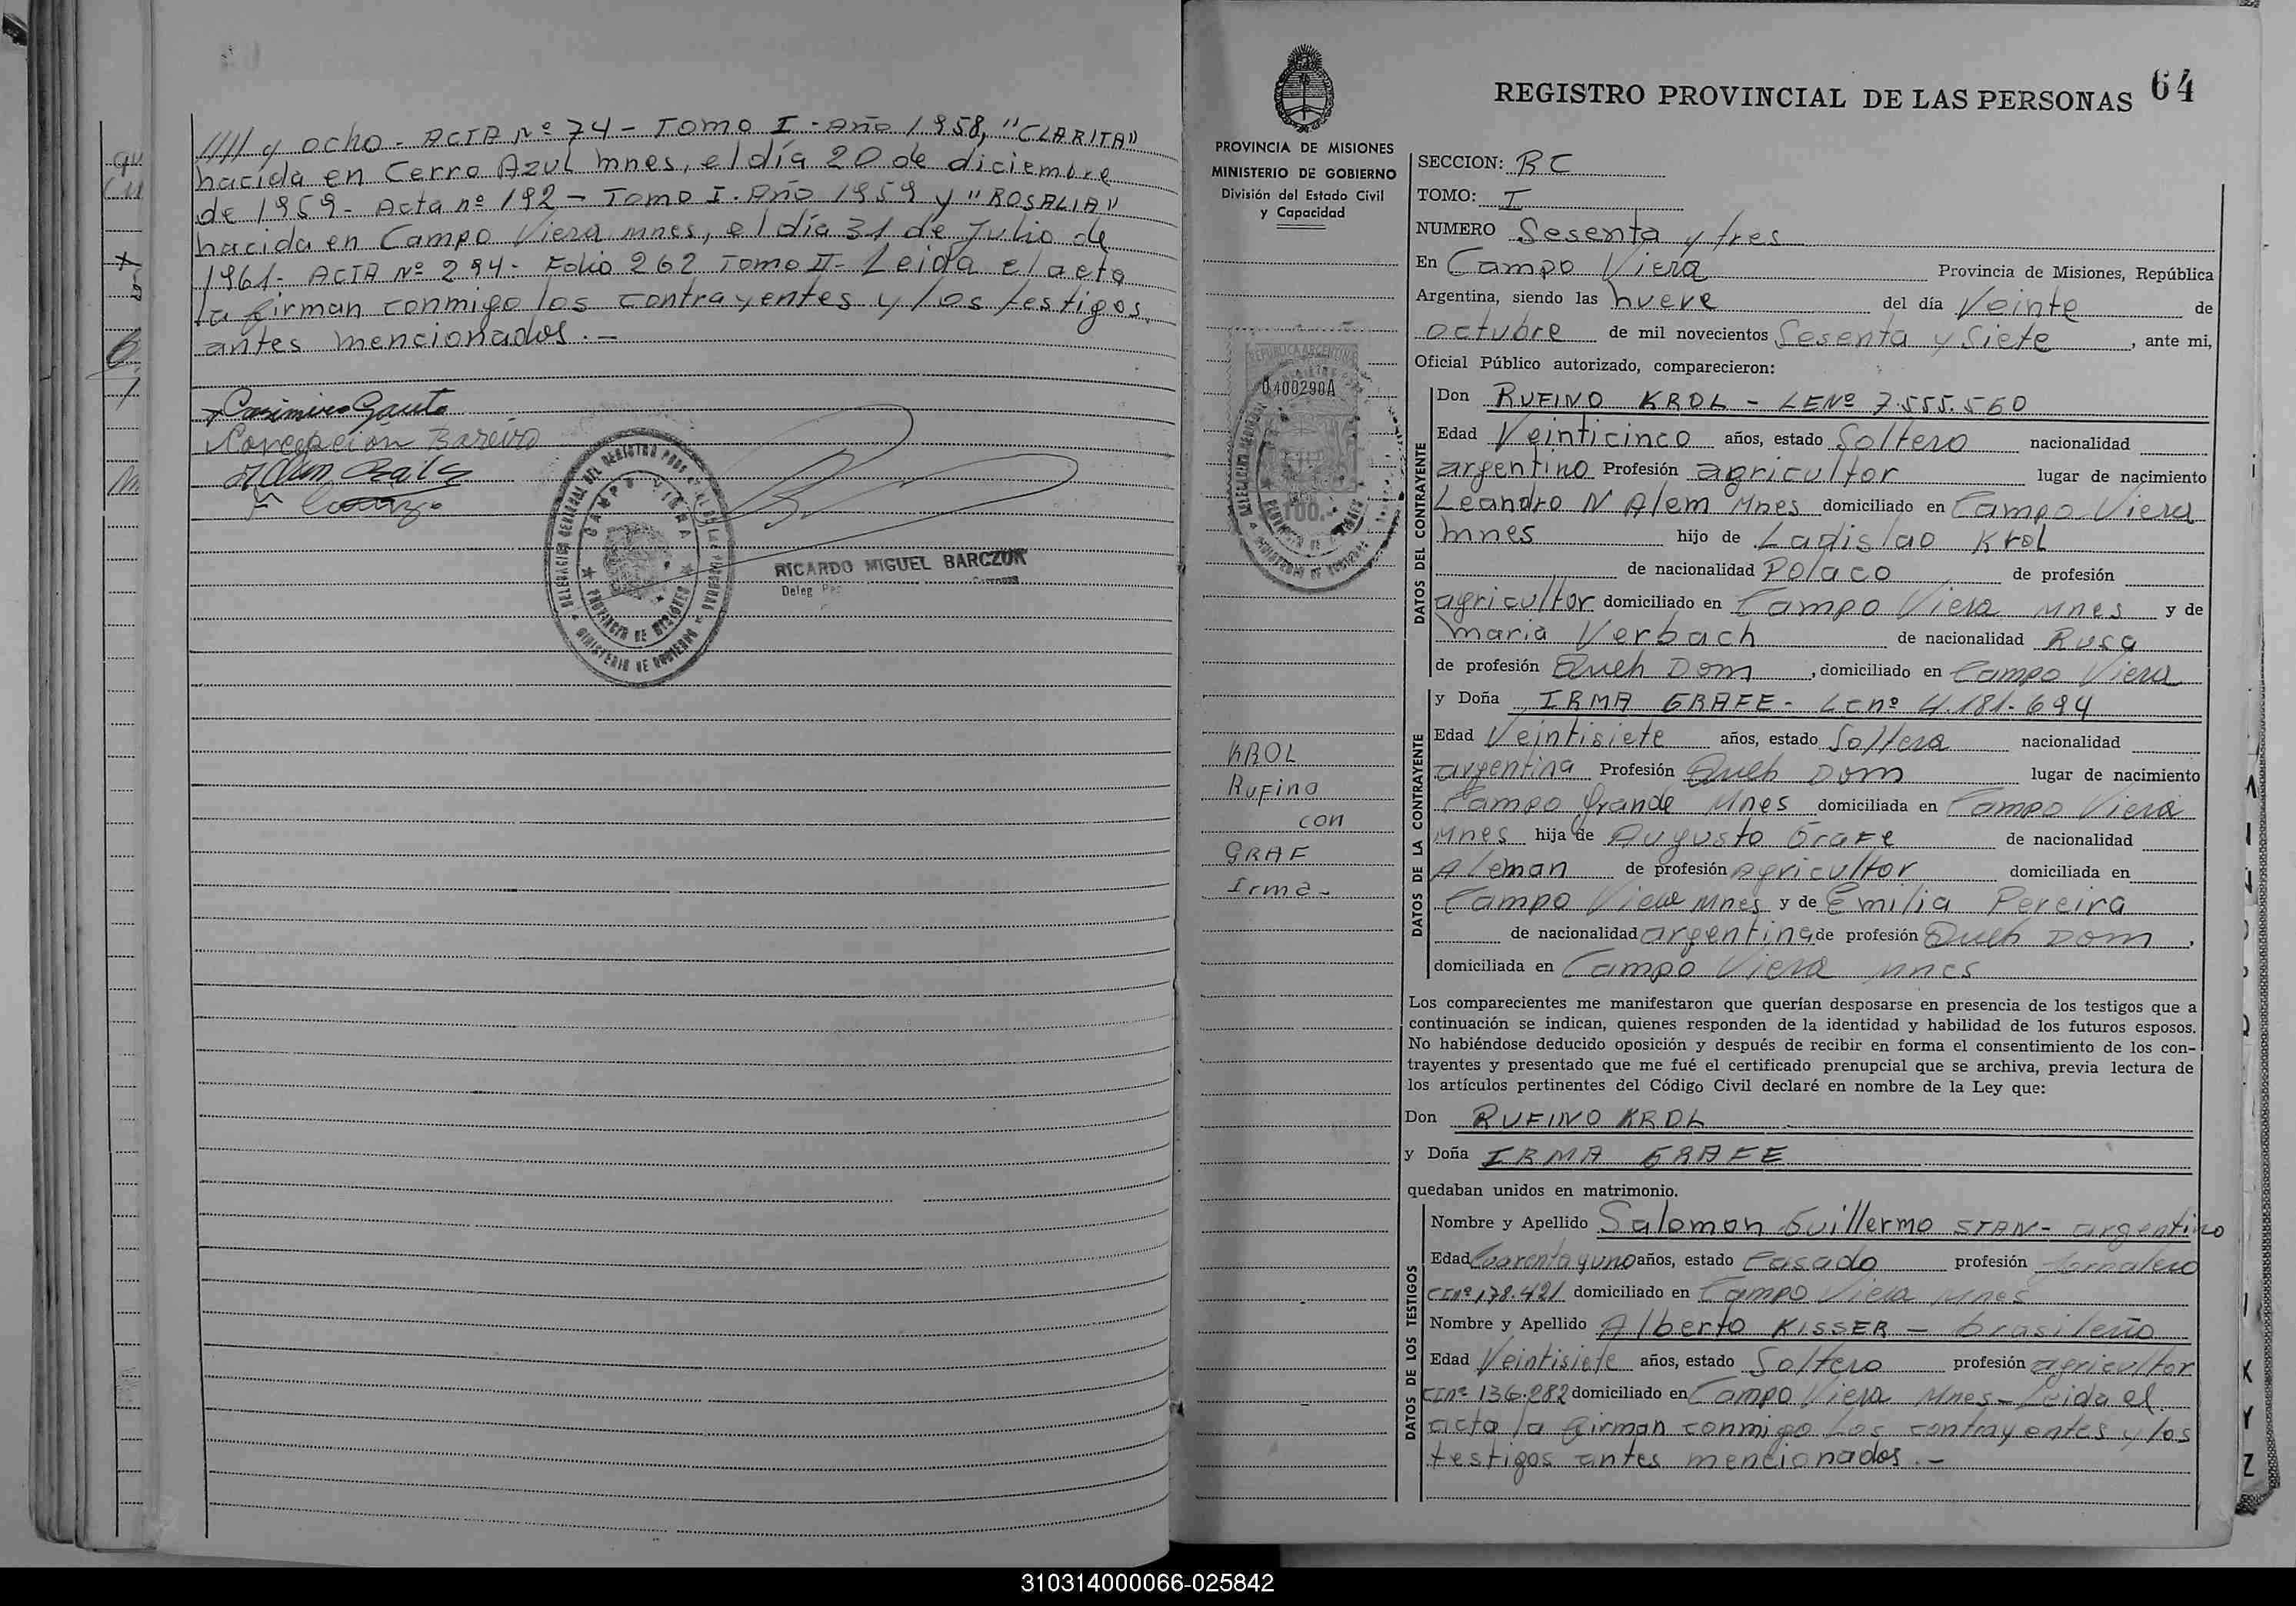 //// y ocho - ACTA Nº 74 - Tomo I - Año 1958, "CLARITA"
nacida en Cerro Azul Mnes, el día 20 de diciembre
de 1959 - Acta nº 192 - Tomo I. Año 1959 y "ROSALIA"
nacida en Campo Viera Mnes, el día 31 de Julio de
1961- ACTA Nº 294- Folio 262 Tomo II- Leida el acta
la firman conmigo los contrayentes y los testigos
antes mencionados.-
Casimiro Gauto
Concepción Bareiro
DELEGACION GENERAL DEL REGISTRO PROV. DE LAS PERSONAS
CAMPO VIERA
PROVINCIA DE MISIONES
MINISTERIO DE GOBIERNO
RICARDO MIGUEL BARCZUK
Deleg
64
REGISTRO PROVINCIAL DE LAS PERSONAS
PROVINCIA DE MISIONES
MINISTERIO DE GOBIERNO
División del Estado Civil
y Capacidad
REPUBLICA ARGENTINA
0400290A
100.-
KROL
Rufino
con
GRAF
Irma-
SECCION: RC
TOMO: I
NUMERO Sesenta y tres
En Campo Viera Provincia de Misiones, República
Argentina, siendo las nueve del día Veinte de
octubre de mil novecientos Sesenta y Siete, ante mi,
Oficial Público autorizado, comparecieron:
DATOS DEL CONTRAYENTE
Don RUFINO KROL - LENº 7.555.560
Edad Veinticinco años, estado Soltero nacionalidad
argentino Profesión agricultor lugar de nacimiento
Leandro N Alem Mnes domiciliado en Campo Viera
Mnes hijo de Ladislao Krol
de nacionalidad Polaco de profesión
agricultor domiciliado en Campo Viera Mnes y de
Maria Verbach de nacionalidad Rusa
de profesión Queh Dom, domiciliado en Campo Viera
DATOS DE LA CONTRAYENTE
y Doña IRMA GRAFE- LCnº 4.181.694
Edad Veintisiete años, estado Soltera nacionalidad
argentina Profesión Queh Dom lugar de nacimiento
Campo Grande Mnes domiciliada en Campo Viera
Mnes hija de Augusto GraFe de nacionalidad
Aleman de profesión Agricultor domiciliada en
Campo Viera Mnes y de Emilia Pereira
de nacionalidad argentina de profesión Queh Dom,
domiciliada en Campo Viera Mnes
Los comparecientes me manifestaron que querían desposarse en presencia de los testigos que a
continuación se indican, quienes responden de la identidad y habilidad de los futuros esposos.
No habiéndose deducido oposición y después de recibir en forma el consentimiento de los con-
trayentes y presentado que me fué el certificado prenupcial que se archiva, previa lectura de
los artículos pertinentes del Código Civil declaré en nombre de la Ley que:
Don RUFINO KROL
y Doña IRMA GRAFE
quedaban unidos en matrimonio.
DATOS DE LOS TESTIGOS
Nombre y Apellido Salomon Guillermo STAN- argentino
Edad Cuarenta y uno años, estado Casado profesión Jornalero
CInº 178.421 domiciliado en Campo Viera Mnes
Nombre y Apellido Alberto KISSER - brasileño
Edad Veintisiete años, estado Soltero profesión agricultor
CInº 136.282 domiciliado en Campo Viera Mnes- Leida el
acta la firman conmigo los contrayentes y los
testigos antes mencionados.-
310314000066-025842